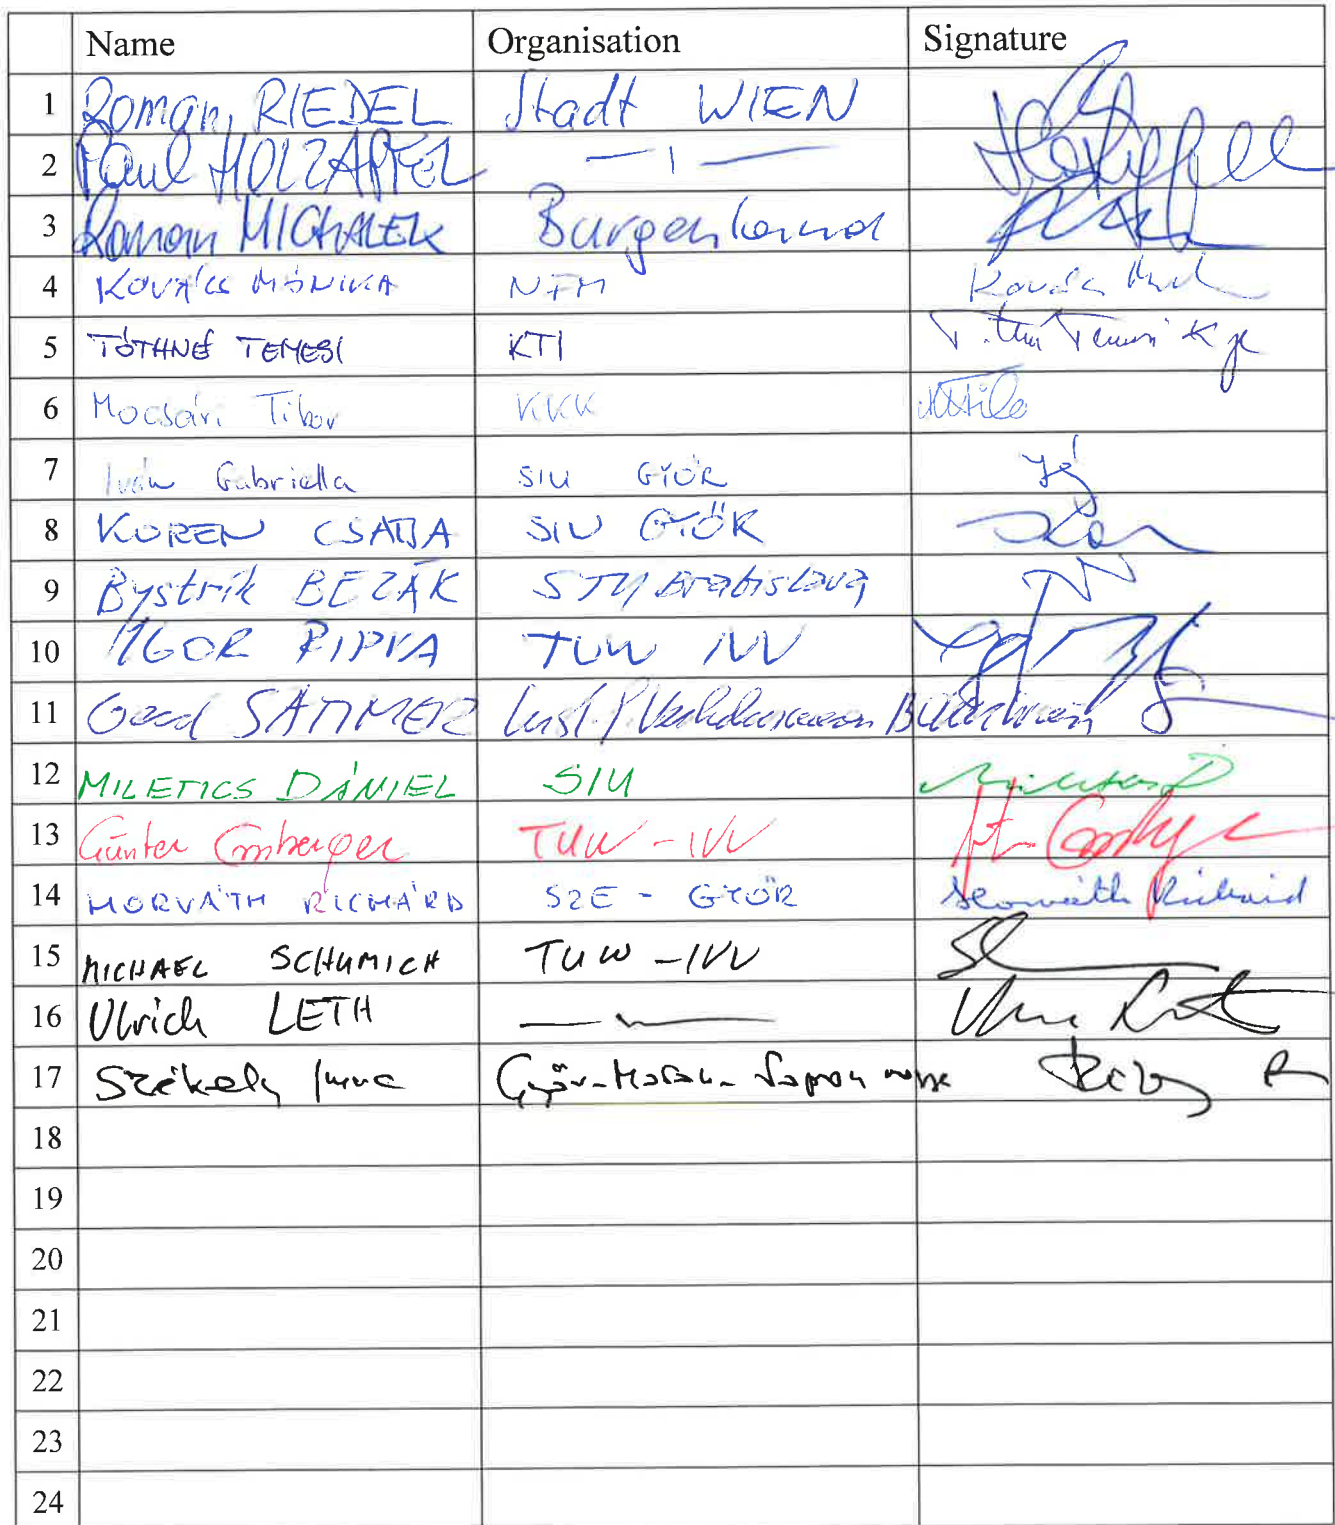 Name Organisation Signature
1 Roman RIEDEL Stadt WIEN
2 Paul HOLZAPFEL — ı —
3 Roman MICHALEK Burgenland
4 KOVÁCS MÓNIKA NFM Kovács
5 TÓTHNÉ TEMESI KTI
6 Mocsári Tibor KKK
7 Iván Gabriella SIU GYŐR
8 KOREN CSABA SIU GYŐR
9 Bystrík BEZÁK STU Bratislava
10 IGOR RIPKA TUW IVV
11 Gerd SAMMER
12 MILETICS DÁNIEL SIU Miletics D
13 Günter Emberger TUW - IVV
14 HORVÁTH RICHÁRD SZE - GYŐR Horváth Richárd
15 MICHAEL SCHUMICH TUW - IVV
16 Ulrich LETH
17 Székely Győr-Moson-Sopron
18
19
20
21
22
23
24